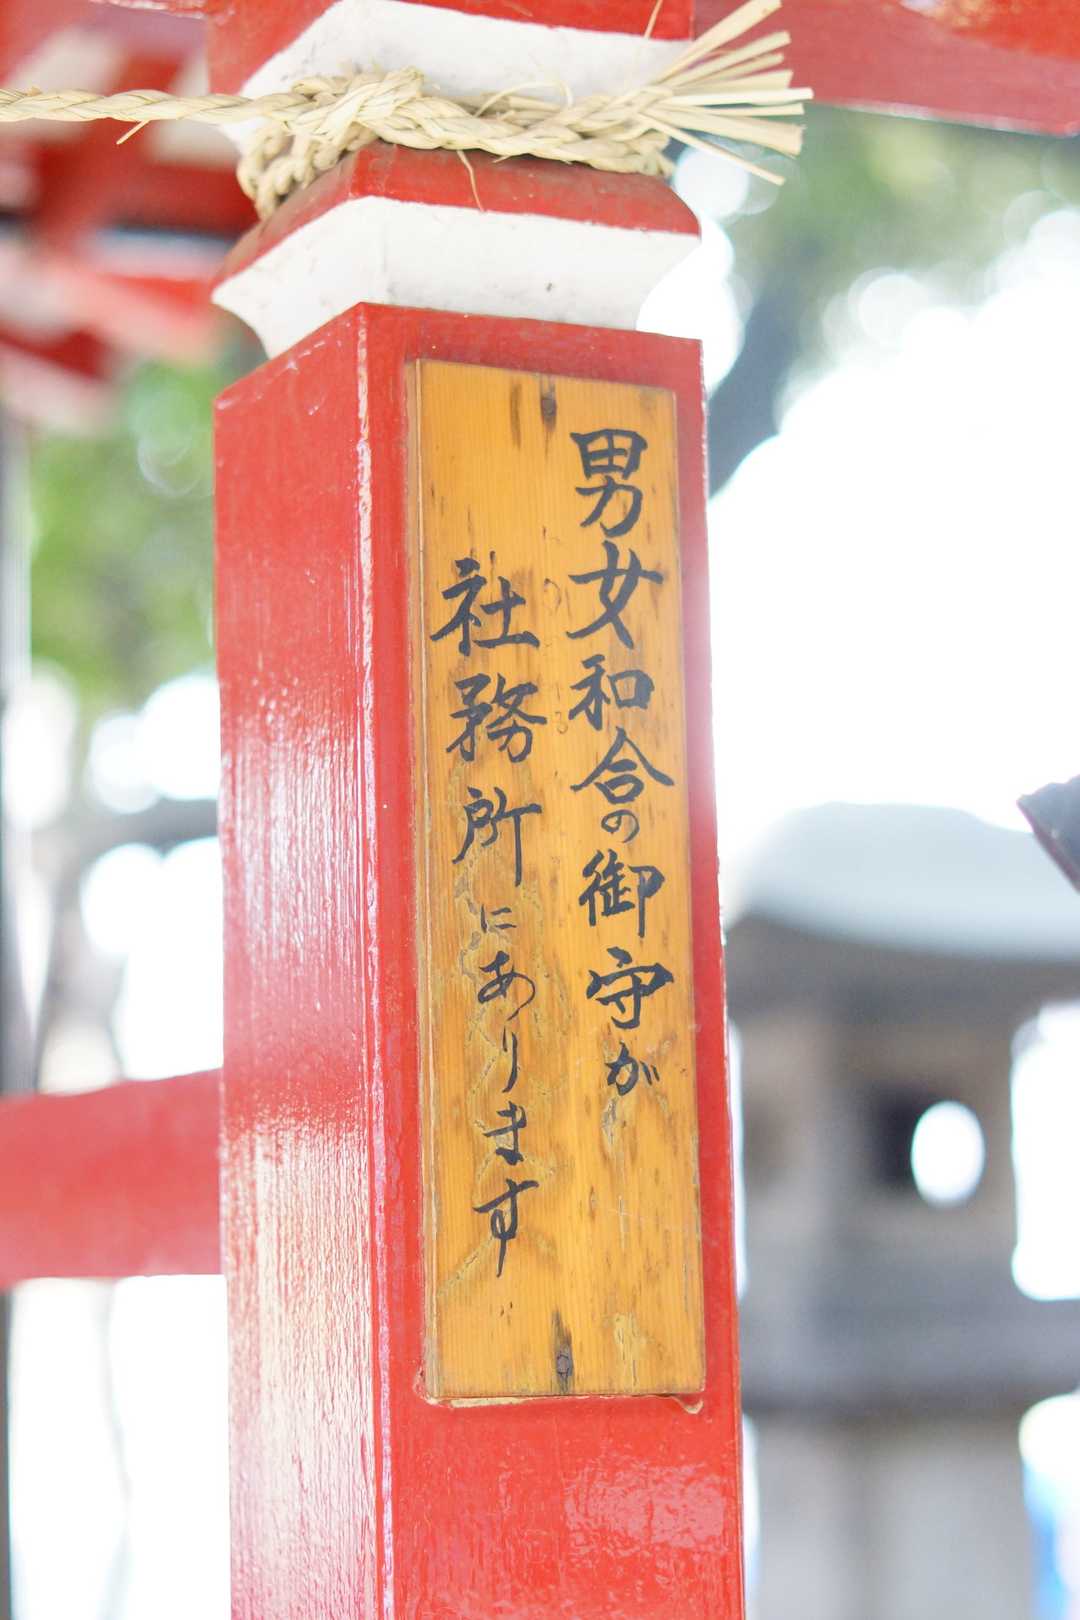 男女和合の御守が
社務所にあります